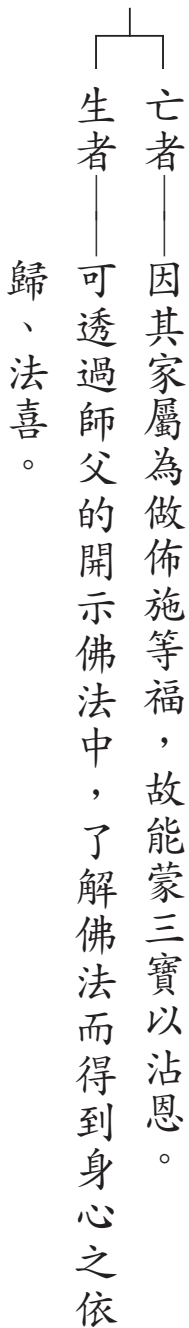 亡者——因其家屬為做佈施等福，故能蒙三寶以沾恩。
生者——可透過師父的開示佛法中，了解佛法而得到身心之依
歸、法喜。